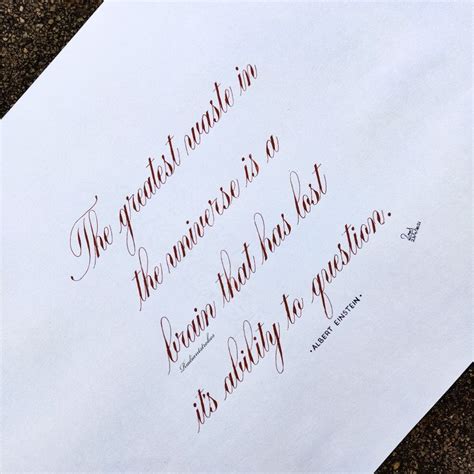 The greatest waste in
the universe is a
brain that has lost
it's ability to question.
·ALBERT EINSTEIN·